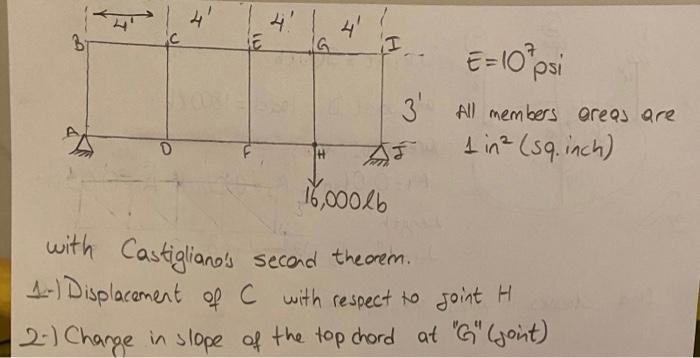 4' 4' 4' 4'
B C E G I
E=10⁷ psi
3' All members areas are
1 in² (sq. inch)
A D F H J
16,000lb
with Castigliano's second theorem.
1-) Displacement of C with respect to joint H
2-) Change in slope of the top chord at "G" (joint)